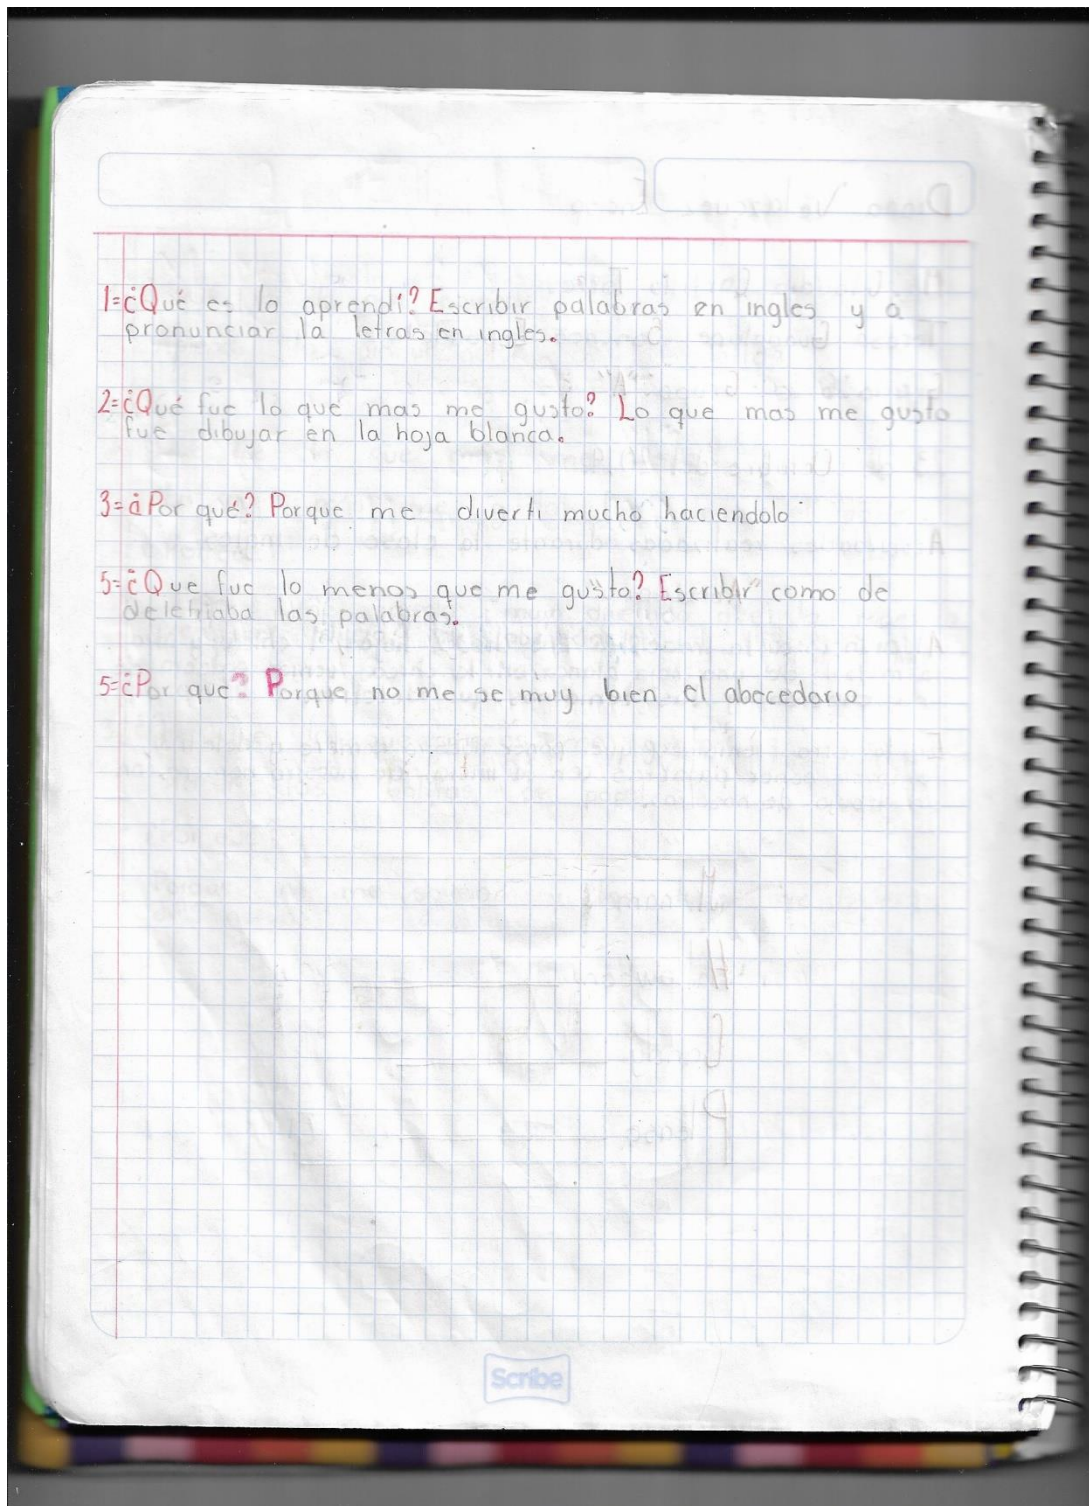 1=¿Qué es lo aprendi? Escribir palabras en ingles y a
pronunciar la letras en ingles.
2=¿Qué fue lo que mas me gusto? Lo que mas me gusto
fue dibujar en la hoja blanca.
3=¿Por qué? Porque me diverti mucho haciendolo
5=¿Que fue lo menos que me gusto? Escribir como de
deletriaba las palabras.
5=¿Por que? Porque no me se muy bien el abecedario
Scribe